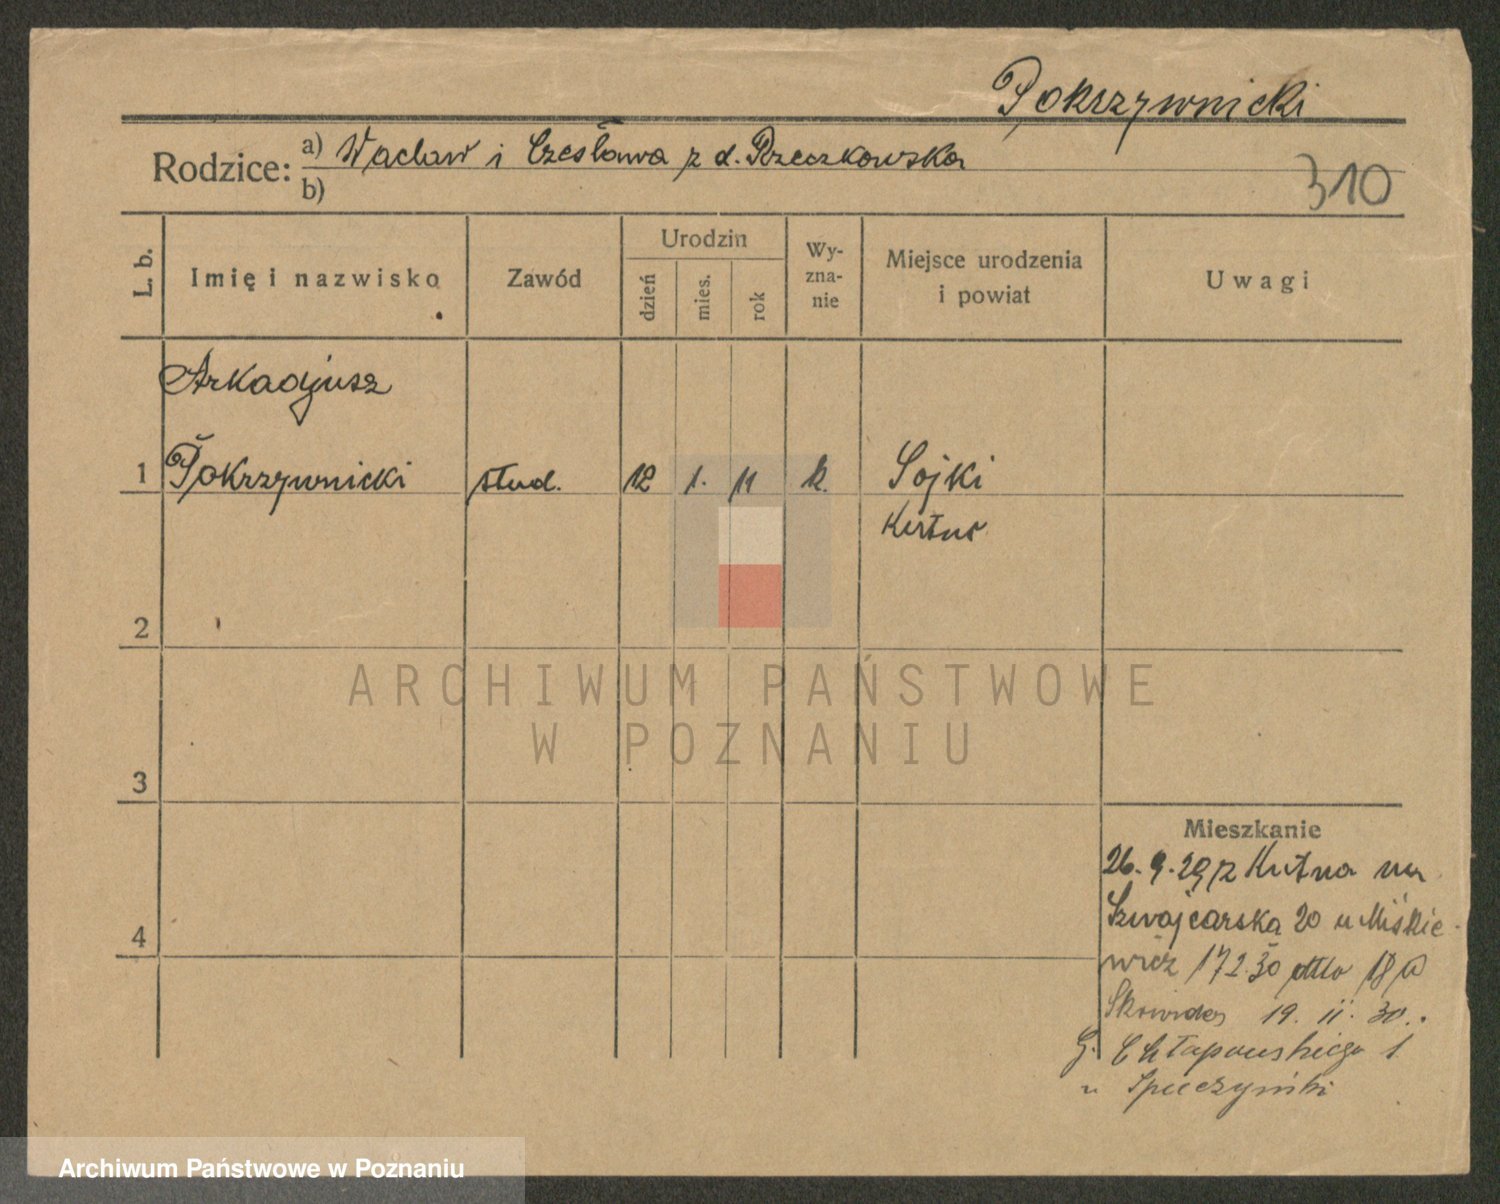 Pokrzywnicki
Rodzice: a) Wacław i Czesława z d. Rzeczkowska
b)
310
L. b.
Imię i nazwisko
Zawód
Urodzin
dzień
mies.
rok
Wy-
zna-
nie
Miejsce urodzenia
i powiat
Uwagi
Arkadjusz
1 Pokrzywnicki stud. 12 1. 11 k. Sojki
Kutno
2
ARCHIWUM PAŃSTWOWE
W POZNANIU
3
Mieszkanie
26.9.29 z Kutna na
Szwajcarska 20 u Miśkie-
4
wicz 17 2.30 dtto 18
19. 11. 30.
G. Chłapowskiego 1
u
Archiwum Państwowe w Poznaniu